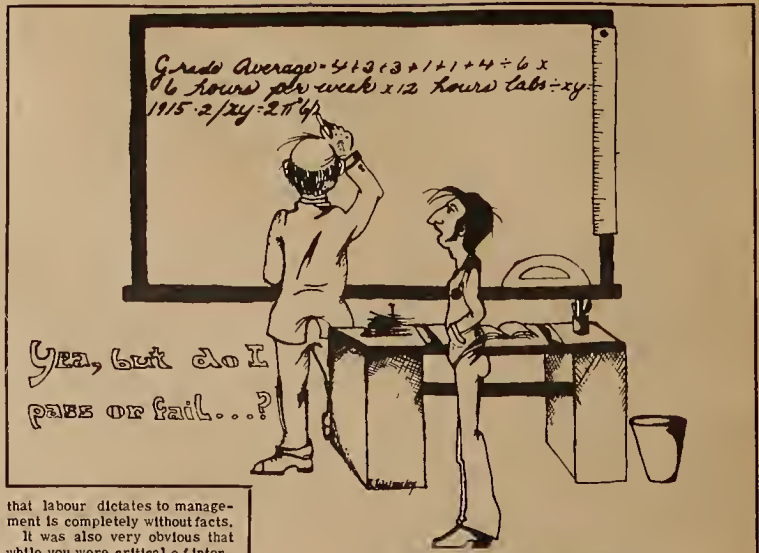 Grade Average = 4+3+3+1+1+4÷6 x
6 hours per week x 12 hours labs ÷ xy =
1915·2/xy = 2π
Yea, but do I
pass or fail...?
that labour dictates to manage-
ment is completely without facts.
It was also very obvious that
while you were critical of inter-